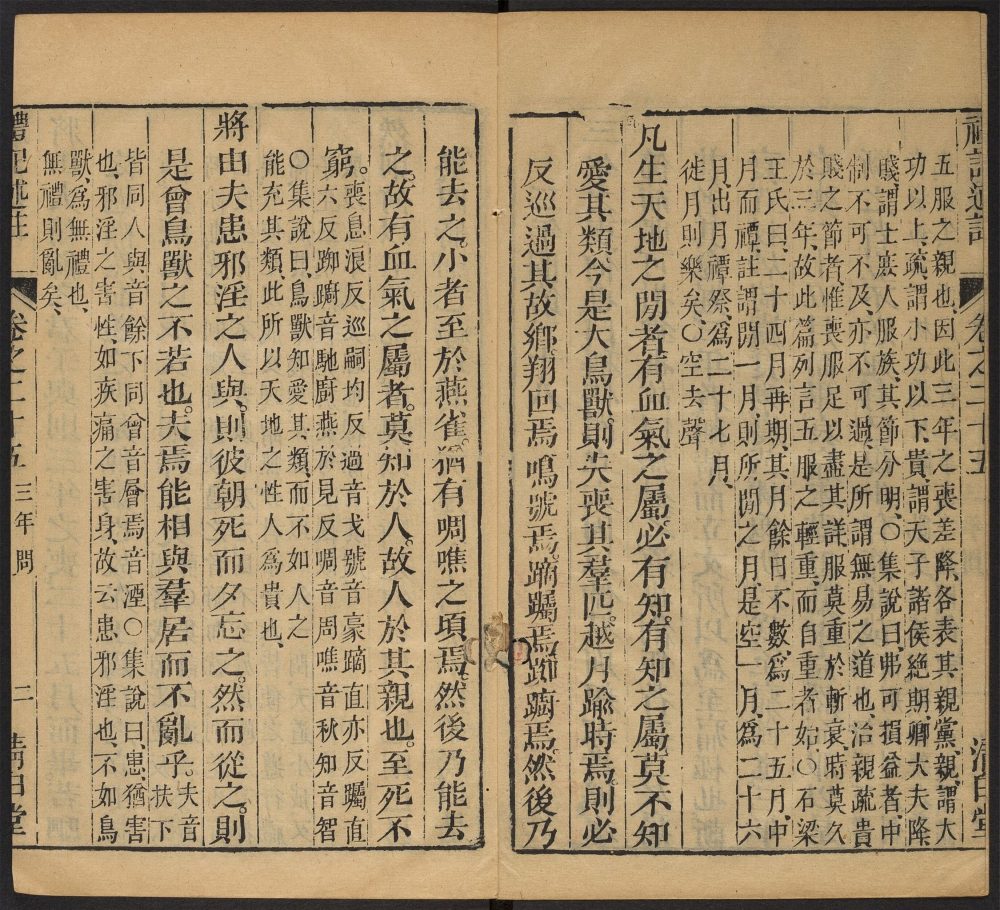 禮記述註 卷之二十五 清白堂
五服之親也、因此三年之喪差降、各表其親黨、親、謂大
功以上、疏、謂小功以下、貴、謂天子諸侯絶期、卿大夫降
賤、謂士庶人服族、其節分明、〇集說曰、弗可損益者、中
制不可不及、亦不可過、是所謂無易之道也、治親疏貴
賤之節者、惟喪服足以盡其詳、服莫重於斬衰、時莫久
於三年、故此篇列言五服之輕重、而自重者始、〇石梁
王氏曰、二十四月再期、其月餘日不數、爲二十五月、中
月而禫、註謂閒一月、則所閒之月、是空一月、爲二十六
月、出月禫祭、爲二十七月、
徙月則樂矣、〇空去聲
凡生天地之閒者、有血氣之屬必有知。有知之屬莫不知
愛其類、今是大鳥獸、則失喪其羣匹。越月踰時焉。則必
反巡過其故鄉。翔回焉、鳴號焉。蹢躅焉、踟躕焉、然後乃
能去之。小者至於燕雀。猶有啁噍之頃焉。然後乃能去
之。故有血氣之屬者、莫知於人。故人於其親也。至死不
窮。喪息浪反巡嗣均反過音戈號音豪蹢直亦反躅直
六反踟躕音馳廚燕於見反啁音周噍音秋知音智
〇集說曰、鳥獸知愛其類、而不如人之
能充其類、此所以天地之性人爲貴也、
將由夫患邪淫之人與。則彼朝死而夕忘之。然而從之。則
是曾鳥獸之不若也。夫焉能相與羣居而不亂乎。夫音扶下
皆同人與音餘下同曾音層焉音湮〇集說曰、患、猶害
也、邪淫之害性、如疾痛之害身、故云患邪淫也、不如鳥
獸、爲無禮也、
無禮則亂矣、
禮記述註 卷之二十五 三年問 二 清白堂